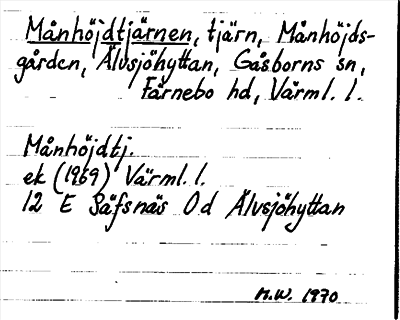 Månhöjdtjärnen, tjärn, Månhöjds-
gården, Älvsjöhyttan, Gåsborns sn,
Färnebo hd, Värml. l.
Månhöjdtj.
ek (1969) Värml. l.
12 E Säfsnäs Od Älvsjöhyttan
M.W. 1970